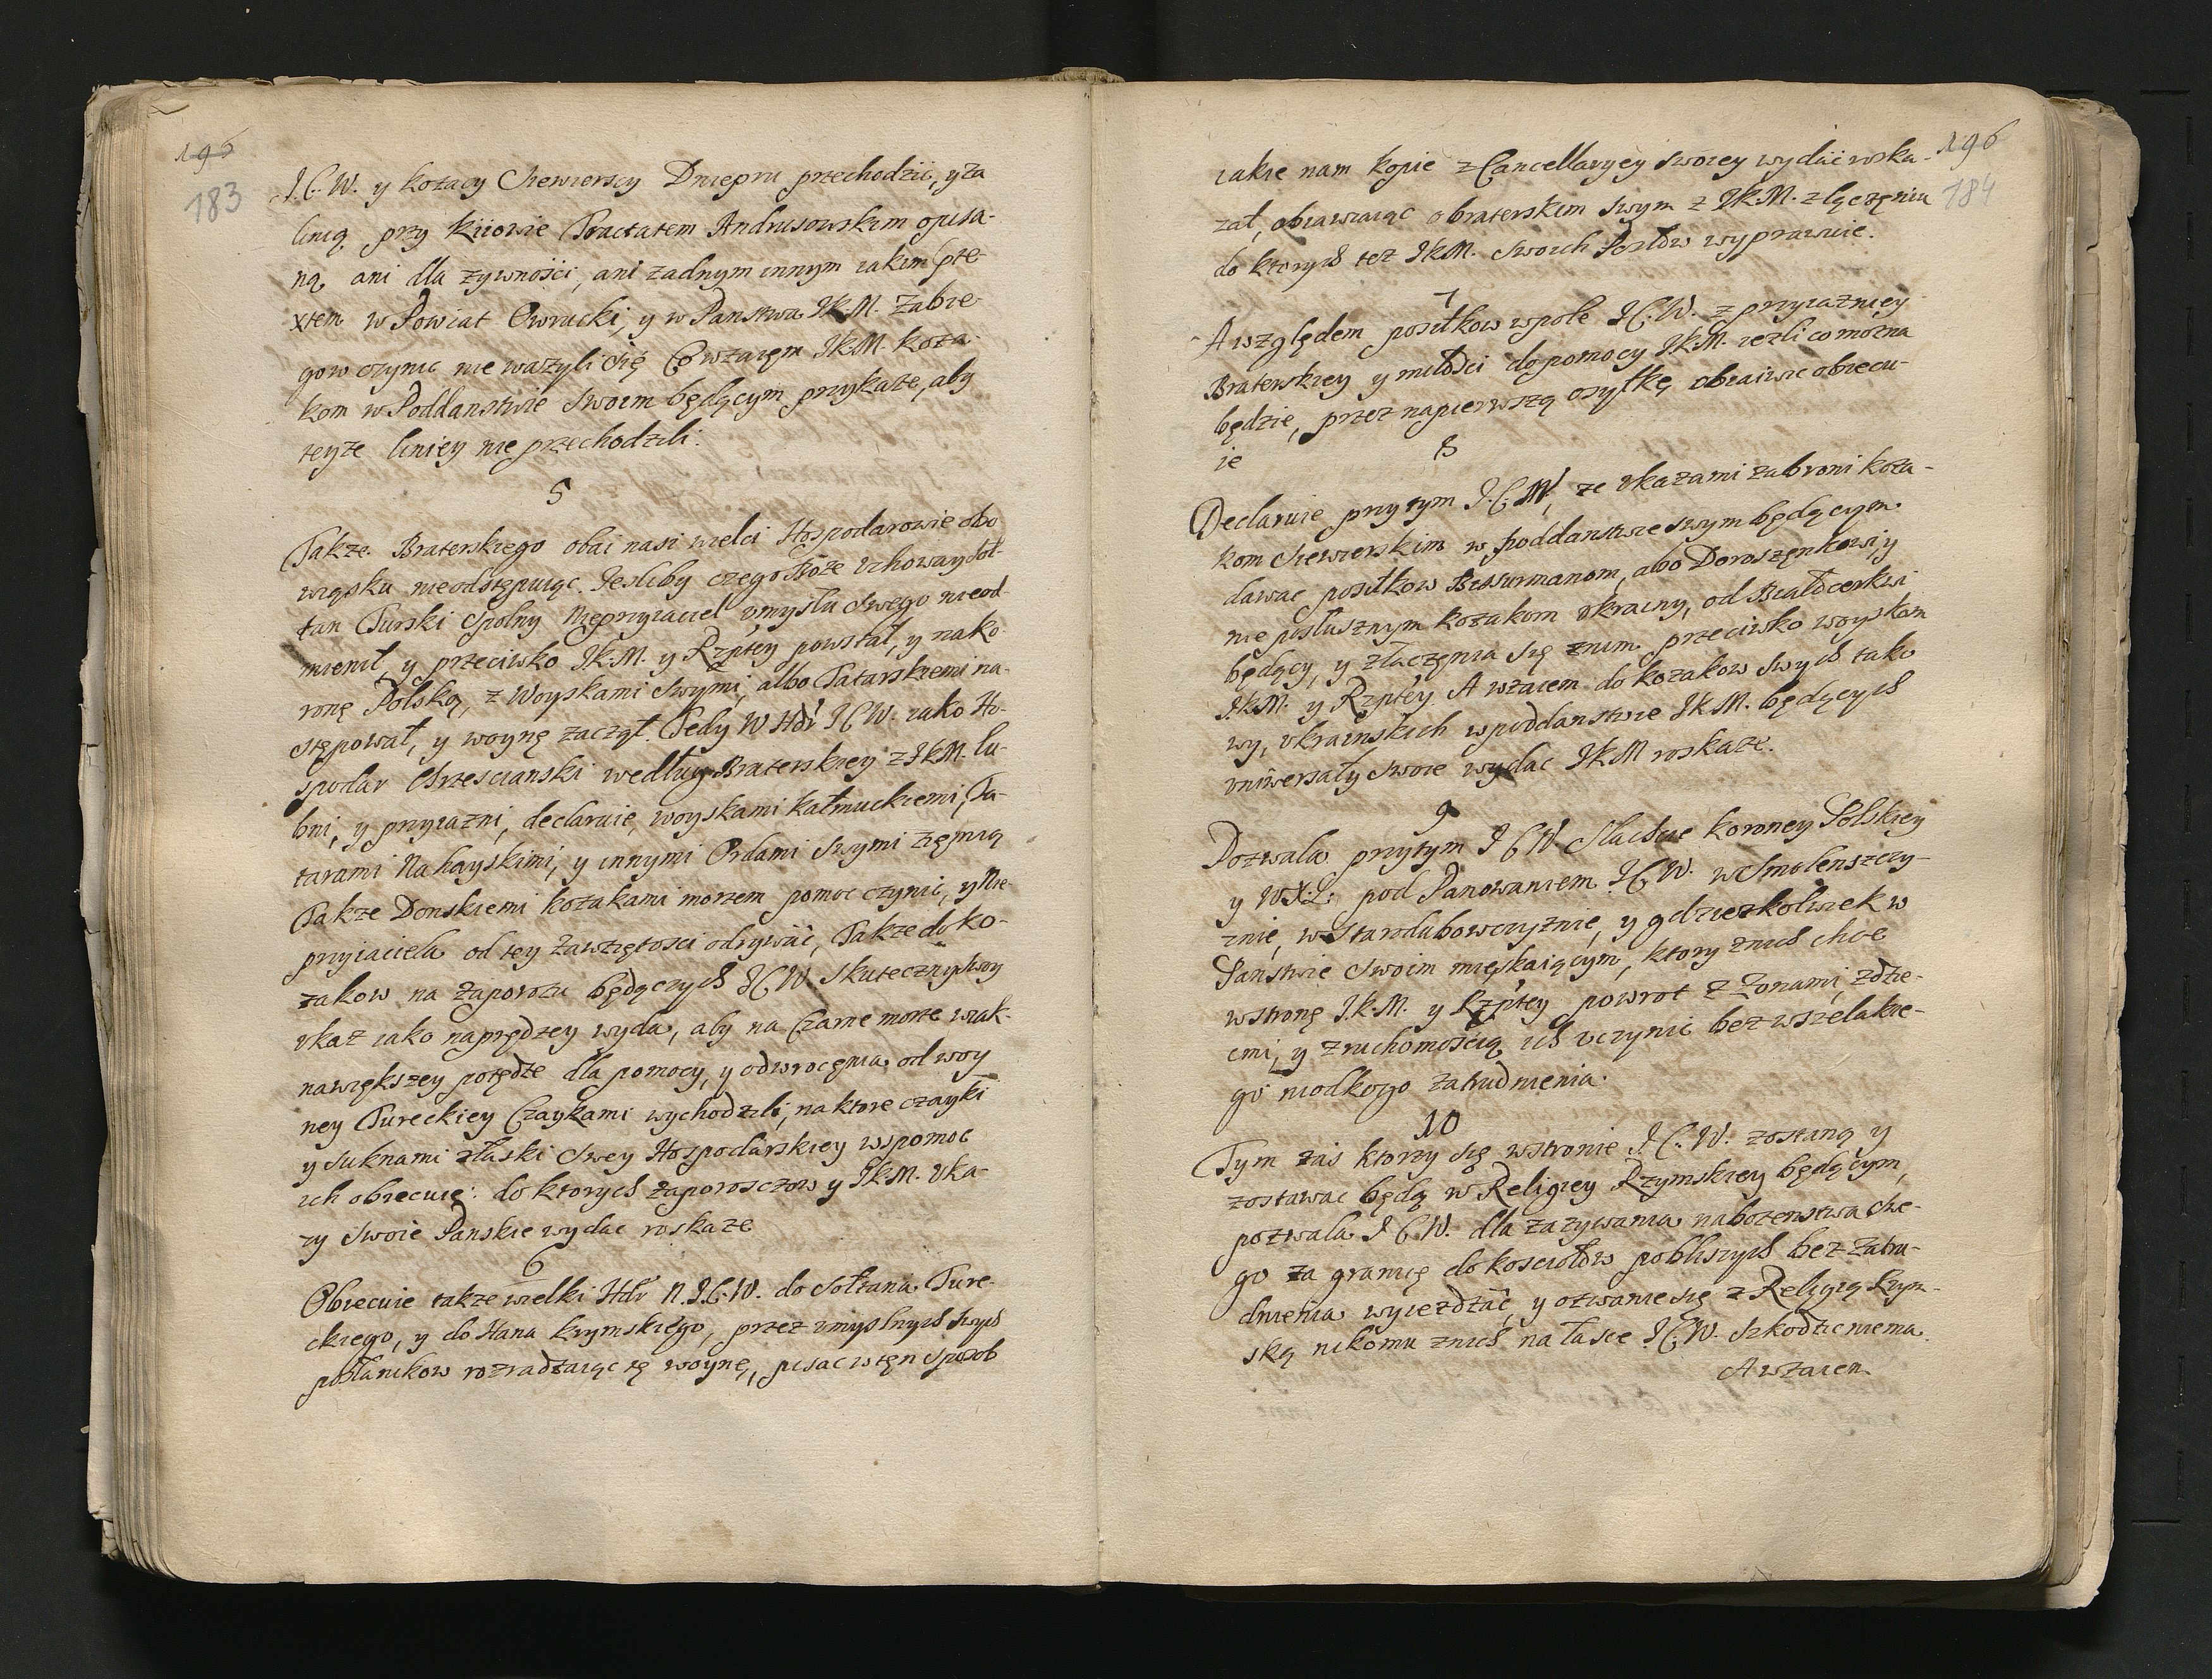 196
183
J.C.W. y kozacy Siewierscy Dniepru przechodzić, y za
linią przy kiiowie Tractatem Andrusowskim opisa-
ną ani dla zywności, ani zadnym innym iakim pre-
xtem w Powiat Owrucki, y w Panstwa JKM. Zabie-
gow czynic nie wazyli się Co wzaięm JKM. koza-
kom w Poddanstwie Swoim będącym przykaze, aby
teyze liniey nie przechodzili:
5
Takze Braterskiego obai nasi wielci Hospodarowie obo
wiąsku nieodstępuiąc. Jesliby czego Boze Uchoway Sol-
tan Turski Spolny Nieprzyiaciel umysłu Swego nieod-
mienił, y przeciwko JKM. y Rzptey powstał, y na ko
ronę Polską, z Woyskami Swymi, albo Tatarskiemi na-
stępował, y woynę zaczął. Tedy W Hdr JCW. iako Ho-
spodar Chrzescianski według Braterskiey z JKM. lu-
bni, y przyiazni, declaruie, woyskami kałmuckiemi, Ta-
tarami Nahayskimi, y innymi Ordami Swymi zięmią
Takze Donskiemi kozakami morzem pomoc czynic, y Nie-
przyiaciela od tey Zawziętosci odrywać, Takze do ko-
zakow na Zaporozu będączych JCW. Skuteczny Swoy
ukaz iako naprędzey wyda, aby na Czarne morze wiak-
nawiększey potędze dla pomocy, y odwrocęnia od woy
ney Tureckiey Czaykami wychodzili, na ktore czayki
y Suknami złaski Swey Hospodarskiey wspomoc
ich obiecuię: do ktorych Zaporosczow y JKM. Uka-
zy Swoie Panskie wydac roskaze
6
Obiecuie takze wielki Hdr N. J.C.W. do Sołtana Ture-
ckiego, y do Hana krymskiego, przez umyslnych swych
posłanikow rozradzaiąc tę woynę, pisac w tęn sposob
196
184
iakie nam kopie z Cancellaryey Swoiey wydać wska-
zał, obiawiaiąc o braterskim Swym z JKM. złączęniu
do ktorych tez JKM. Swoich Posłow wyprawuie.
7
A względem posiłkow w pole JCW. z przyiazniey
Braterskiey y miłości do pomocy JKM. iezli co mozna
będzie, przez napierwszą osyłkę obiaiwic obiecu-
ie
8
Declaruie przytym J.C.W, ze Ukazami zabroni koza-
kom Siewierskim w poddanstwie swym będącym
dawac posiłkow Bissurmanom, abo Doroszęnkowi, y
nie posłusznym kozakom Ukrainy, od Białocerkwi
będący, y złączęnia się znimi przeciwko woyskom
JKM. y Rzptey. A wzaiem do kozakow Swych tako
wy, Ukrainskich w poddanstwie JKM. będących
uniwersały Swoie wydac JKM roskaze.
9
Dozwala przytym JCW. Slachcie koronney Polskiey
y W.X.L. pod Panowaniem JCW. w Smolenszczy-
znie, w Starodubowczyznie, y gdzieszkolwiek w
Panstwie Swoim mięskaiącym, ktory znich chce
w stronę J.K.M. y Rzptey powrot z Zonami, z dzie-
cmi, y z ruchomoscią ich uczynic bez wszelakie-
go niodkogo Zatrudnienia.
10
Tym zas ktorzy się w stronie J.C.W. zostaną y
zostawac będą w Religiey Rzymskiey będącym,
pozwala J.C.W. dla zazywania nabozenstwa Swe-
go za granicę do kosciołow pobliszych bez Zatru-
dnienia wyiezdzać, y ozwanie się z Religią Rzym-
ską nikomu znich na łasce JCW. Szkodzic niema.
A wzaiem